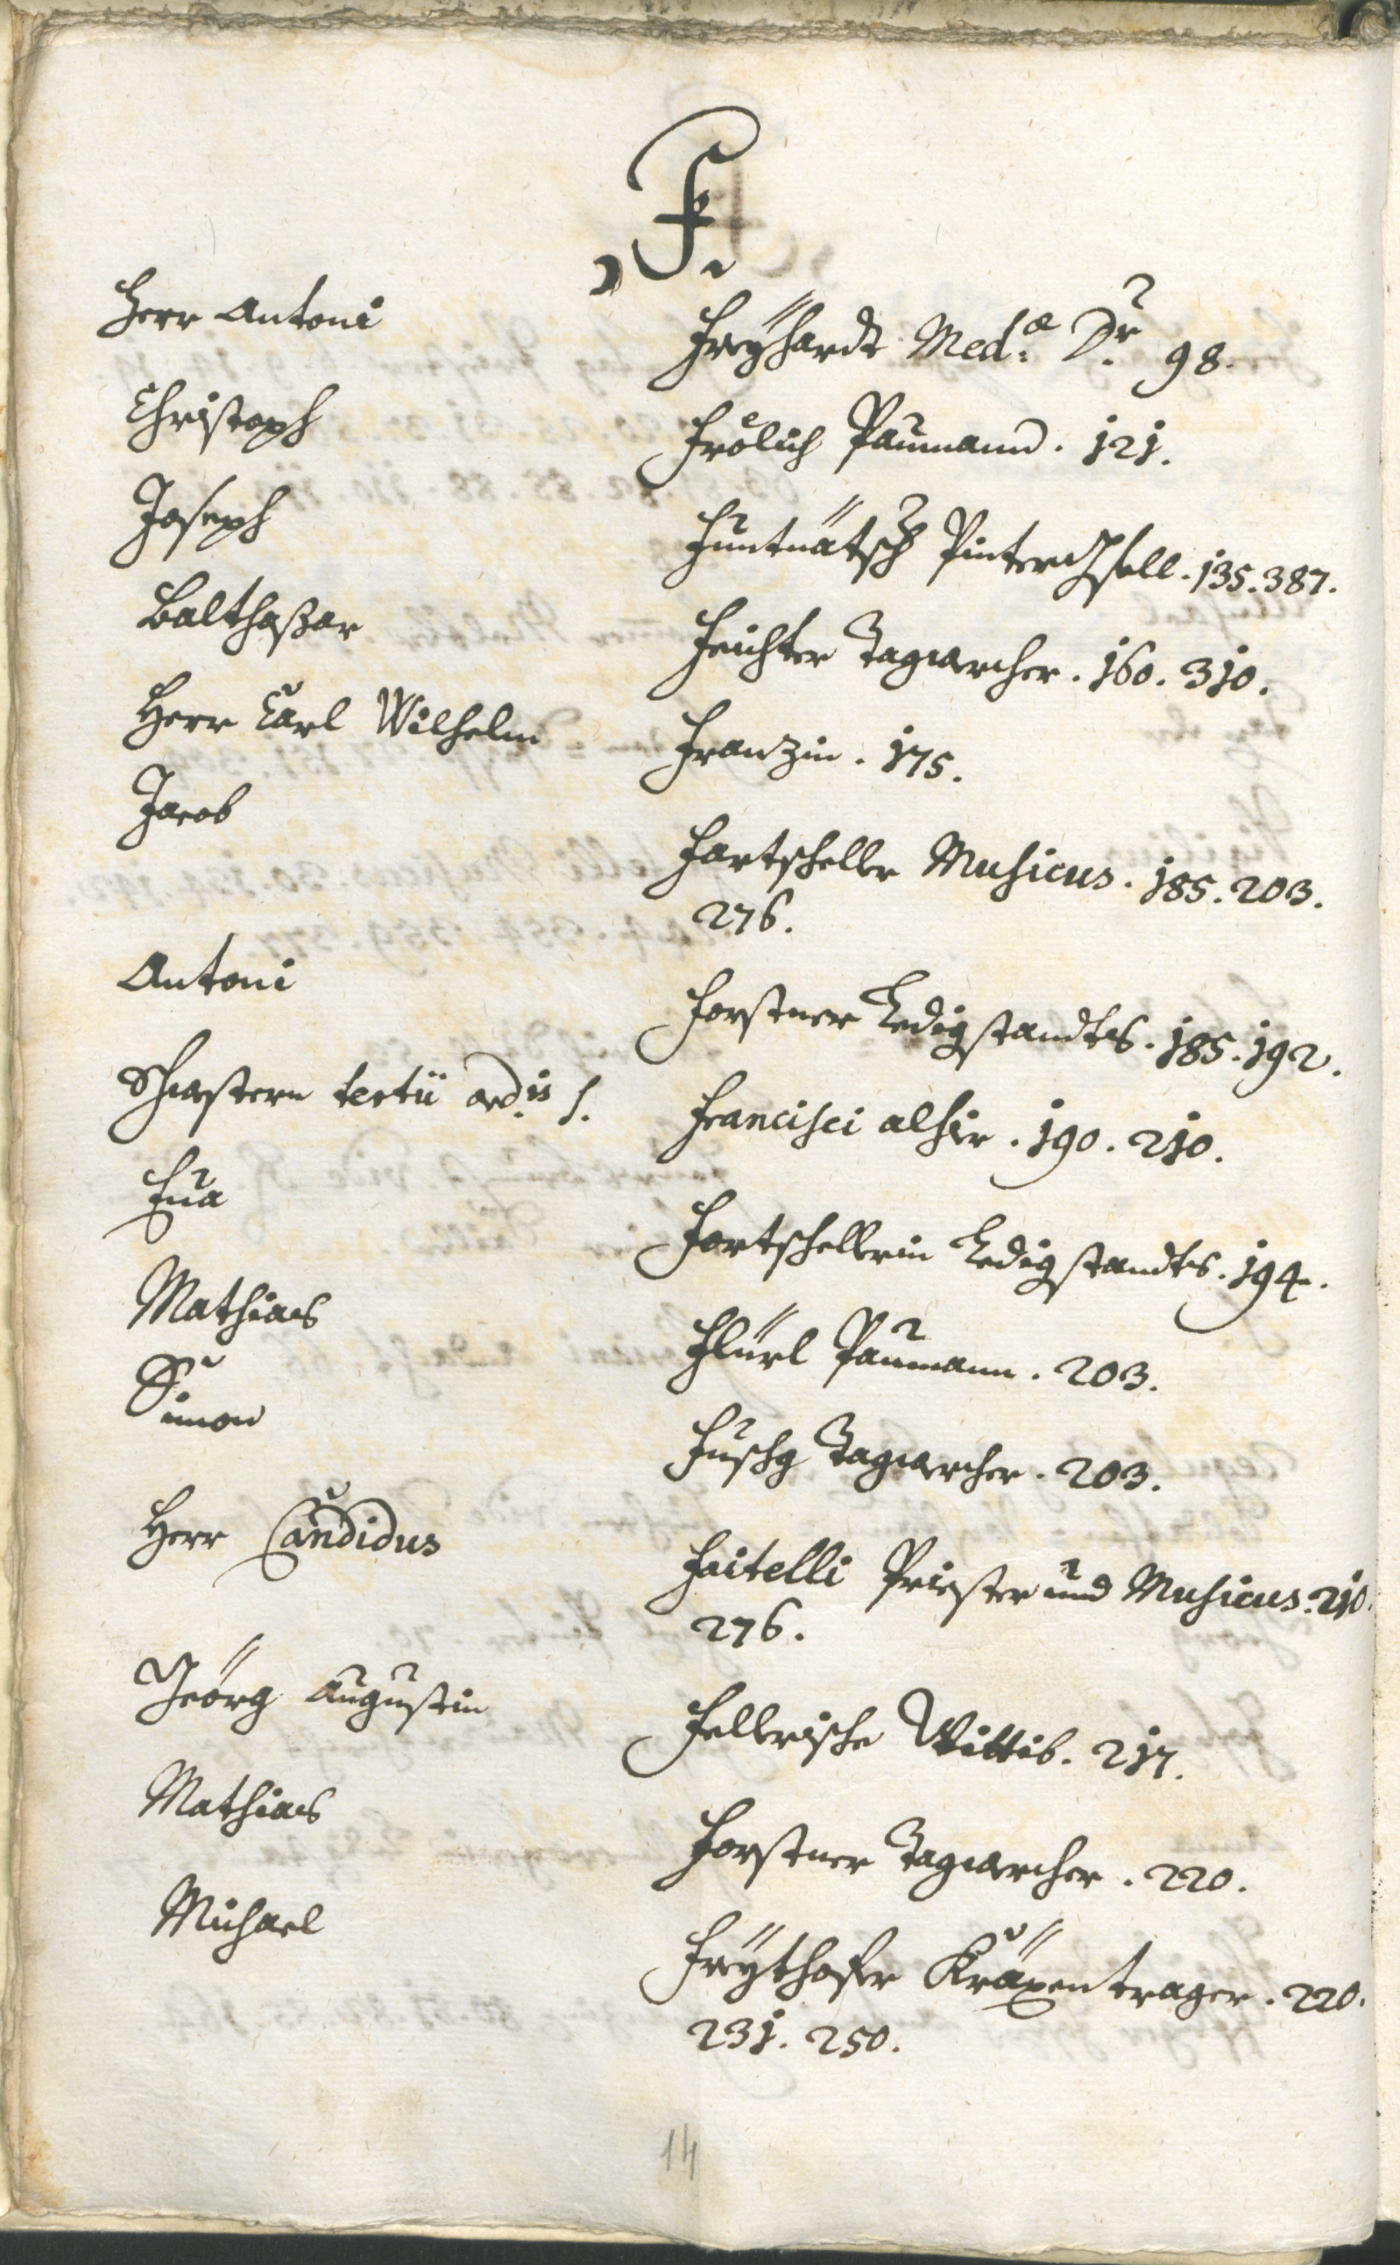 F.
Herr Antoni Freÿhardt Med:æ Dr: 98.
Christoph Frölich Paumann. 121.
Joseph Pintergsell. 135. 387.
Balthaßar Feichter Tagwercher. 160. 310.
Herr Carl Wilhelm Franzin. 175.
Jacob Fartscheller Musicus. 185. 203.
276.
Antoni Forstner Ledigstandts. 185. 192.
Schwestern tertii ord:is S. Francisci alhier. 190. 210.
Eva Fortschellerin Ledigstandts. 194.
Mathias Flürl Paumann. 203.
Simon Fuschg Tagwercher. 203.
Herr Candidus Faitelli Priester und Musicus. 210.
276.
Geörg Augustin Fellerische Wittib. 217.
Mathias Forstner Tagwercher. 220.
Michael Freÿthofer Kräxentrager. 220.
231. 250.
14